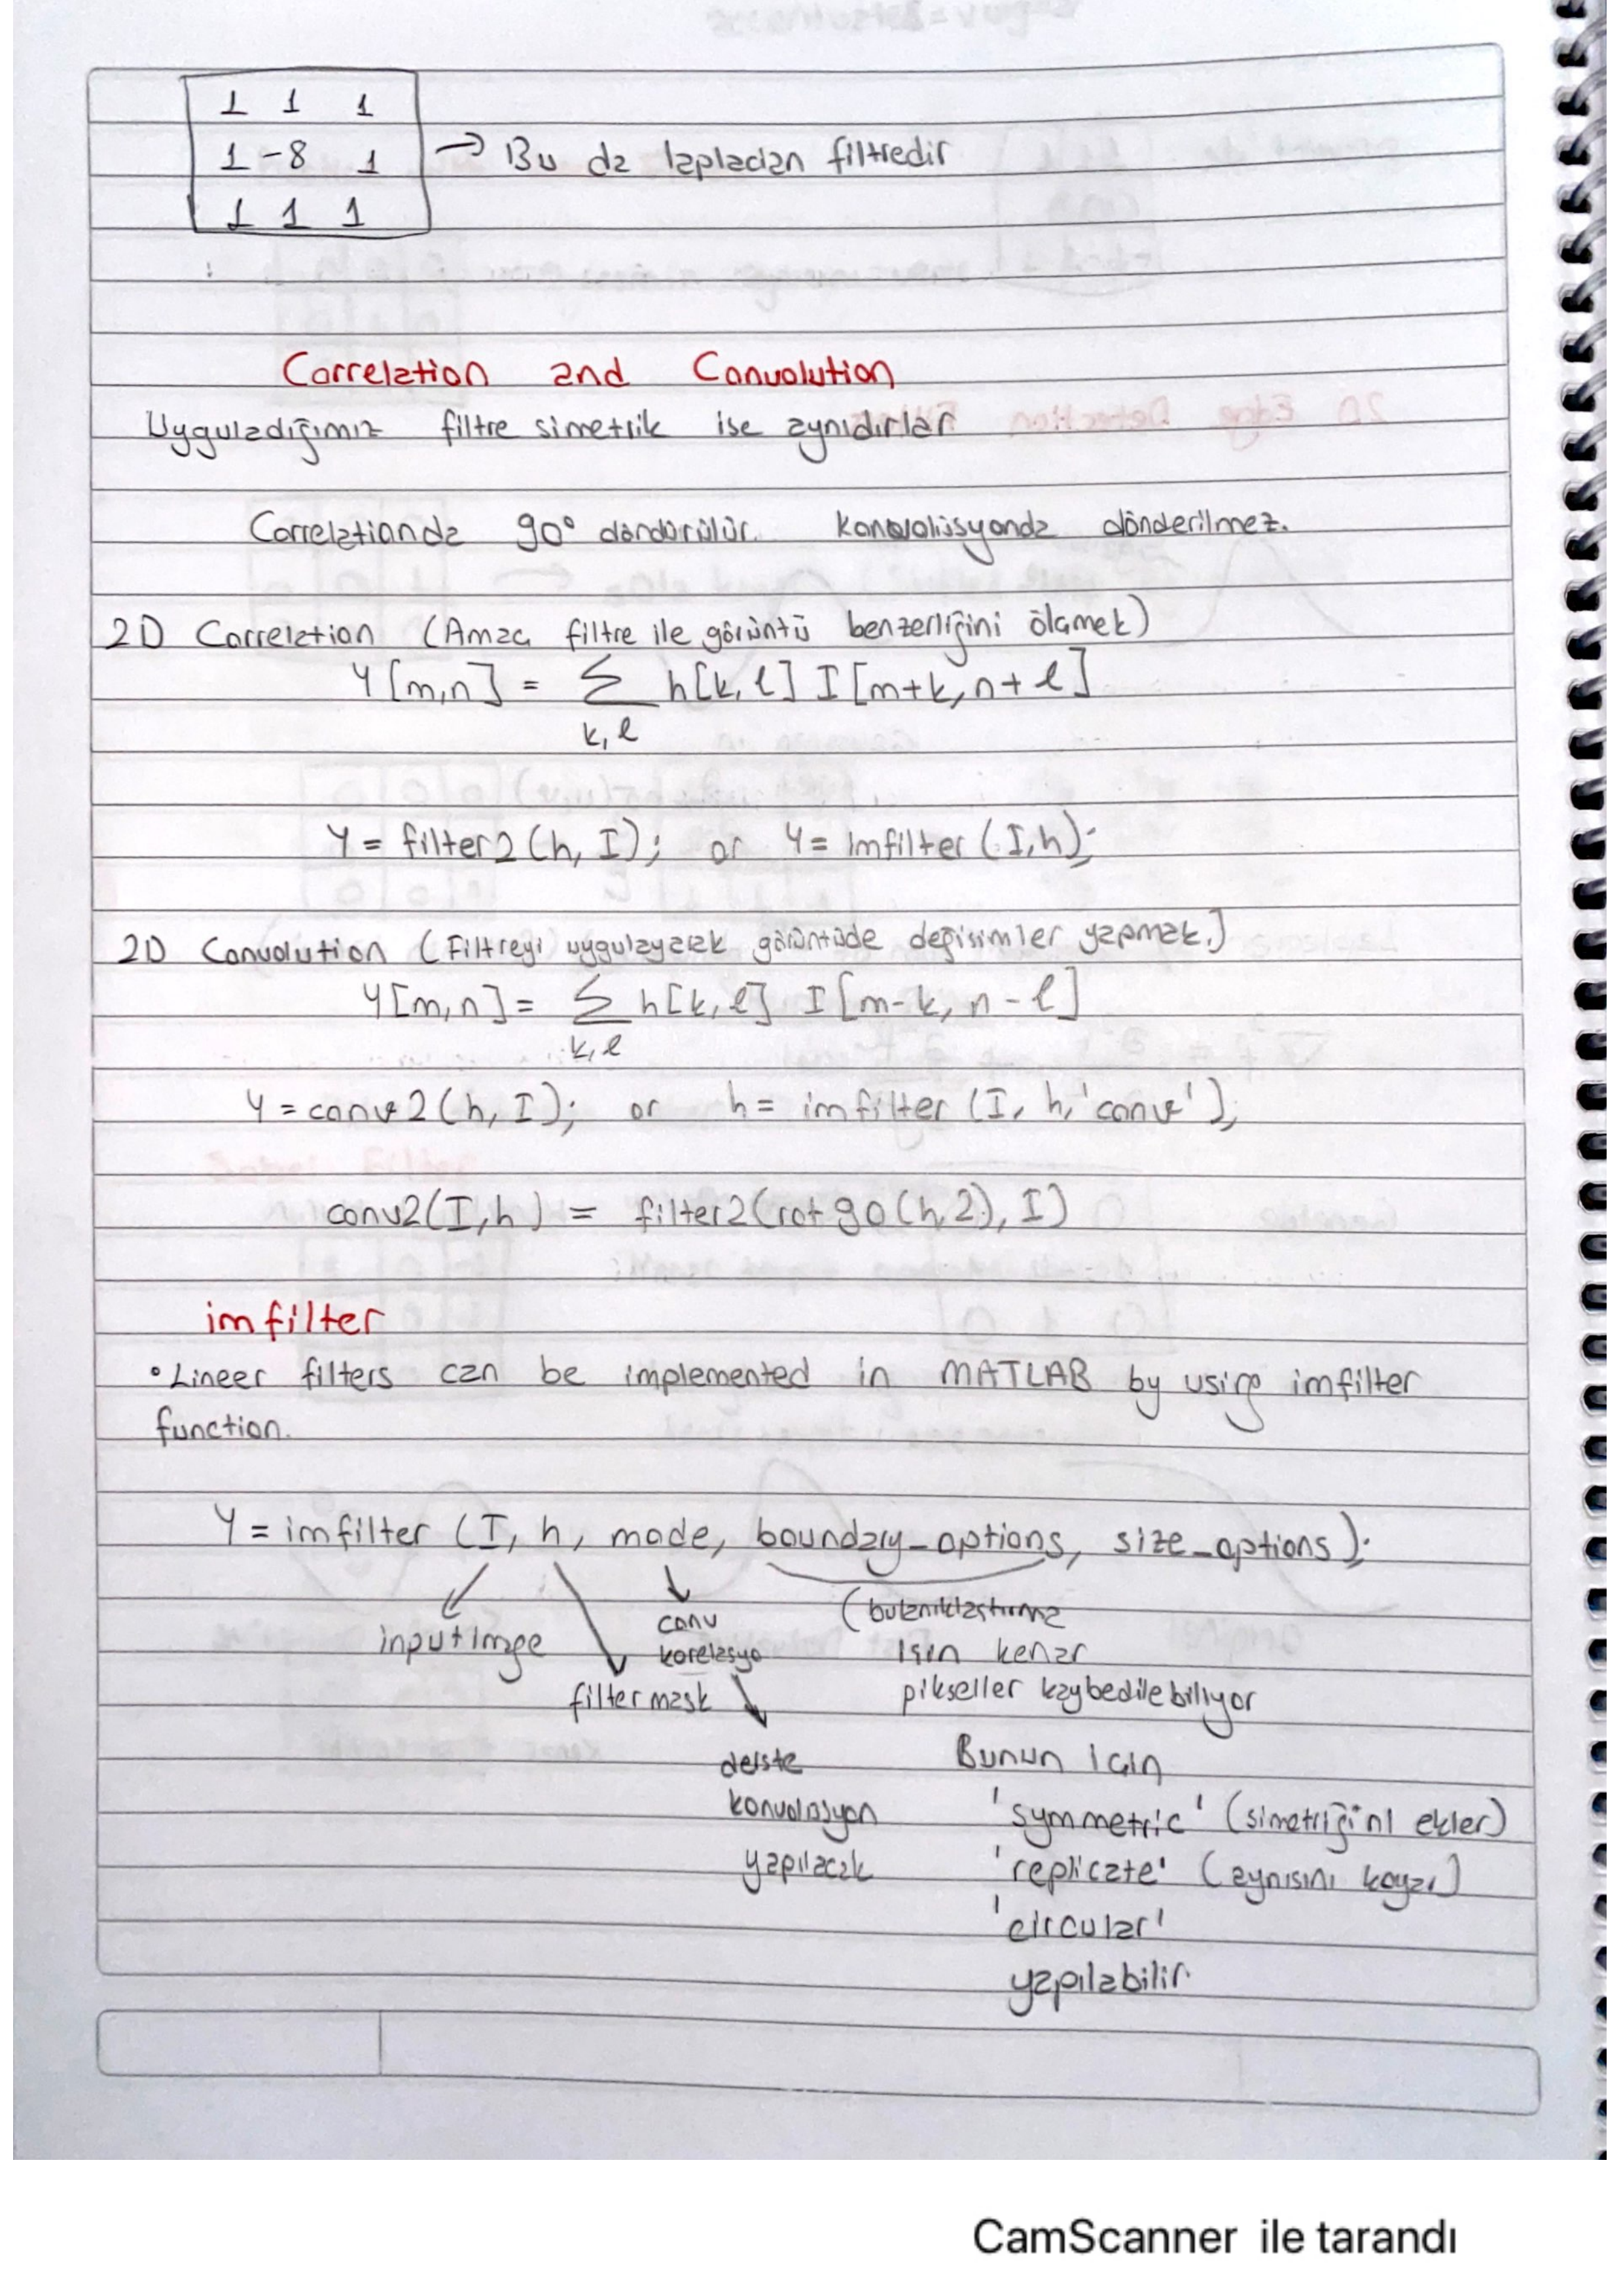 1 1 1
1 -8 1 → Bu da laplacian filtredir
1 1 1
Correlation and Convolution
Uyguladığımız filtre simetrik ise aynıdırlar
Correlationda 90° döndürülür. konvolüsyonda dönderilmez.
2D Correlation (Amaç filtre ile görüntü benzerliğini ölçmek)
Y[m,n] = Σ h[k,l] I[m+k, n+l]
k,l
Y = filter2(h, I); or Y = imfilter(I,h);
2D Convolution (Filtreyi uygulayarak görüntüde değişimler yapmak.)
Y[m,n] = Σ h[k,l] I[m-k, n-l]
k,l
Y = conv2(h, I); or h = imfilter(I, h, 'conv');
conv2(I,h) = filter2(rot90(h,2), I)
imfilter
• Lineer filters can be implemented in MATLAB by using imfilter
function.
Y = imfilter (I, h, mode, boundary_options, size_options);
input imge
filter mask
conv
korelasyo
derste
konvolüsyon
yapılacak
(bulanıklaştırma
için kenar
pikseller kaybedilebiliyor
Bunun için
'symmetric' (simetriğini ekler)
'replicate' (aynısını koyar)
'circular'
yapılabilir.
CamScanner ile tarandı